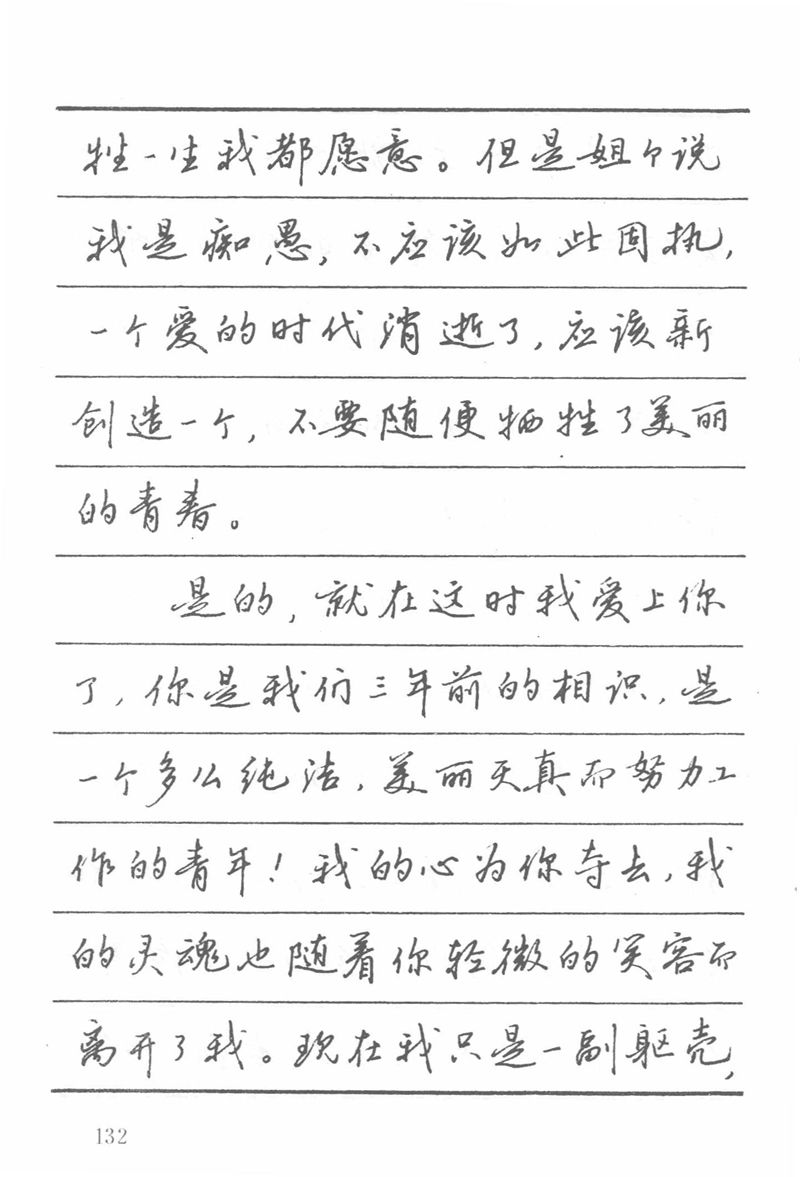 牲一生我都愿意。但是姐个说
我是痴愚，不应该如此固执，
一个爱的时代消逝了，应该新
创造一个，不要随便牺牲了美丽
的青春。
是的，就在这时我爱上你
了，你是我们三年前的相识，是
一个多么纯洁，美丽天真而努力工
作的青年！我的心为你夺去，我
的灵魂也随着你轻微的笑容而
离开了我。现在我只是一副躯壳，
132